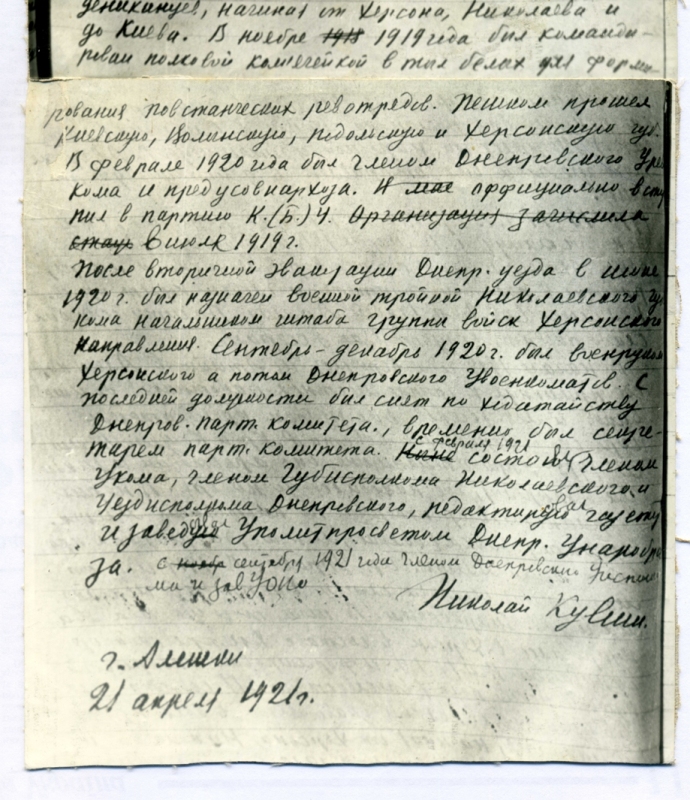 деникануев, начиная от Херсона, Николаева и
до Киева. В ноябре 1918 1919 года был команди-
рован полковой комячейкой в тыл белых для форми-
рования повстанческих ревотрядов. Пешком прошел
Киевскую, Волынскую, Подольскую и Херсонскую губ.
В феврале 1920 года был членом Днепровского Уре
кома и предусовнархоза. И мае оффициально всту
пил в партию К.(Б.)У. Организация зачислила
стаж в июля 1919 г.
После вторичной эвакуации Днепр. уезда в июне
1920 г. был назначен военной тройкой Николаевского гу
кома начальником штаба группы войск Херсонского
направления. Сентябрь - декабрь 1920 г. был военруком
Херсонского а потом Днепровского Увоенкоматов. С
последней должности был снят по ходатайству
Днепров. парт. комитета., временно был секре-
тарем парт. комитета. Ныне с февраля 1921 состо членом
Укома, членом Губисполкома Николаевского и
Уездисполкома Днепровского, редактирую газету
и заведую Уполитпросветом Днепр. Унаробра
за. с ноябр сентября 1921 года членом Днепровского Уиспол
ма и завУОНО
Николай Кувшин.
г. Алешки
21 апреля 1921 г.